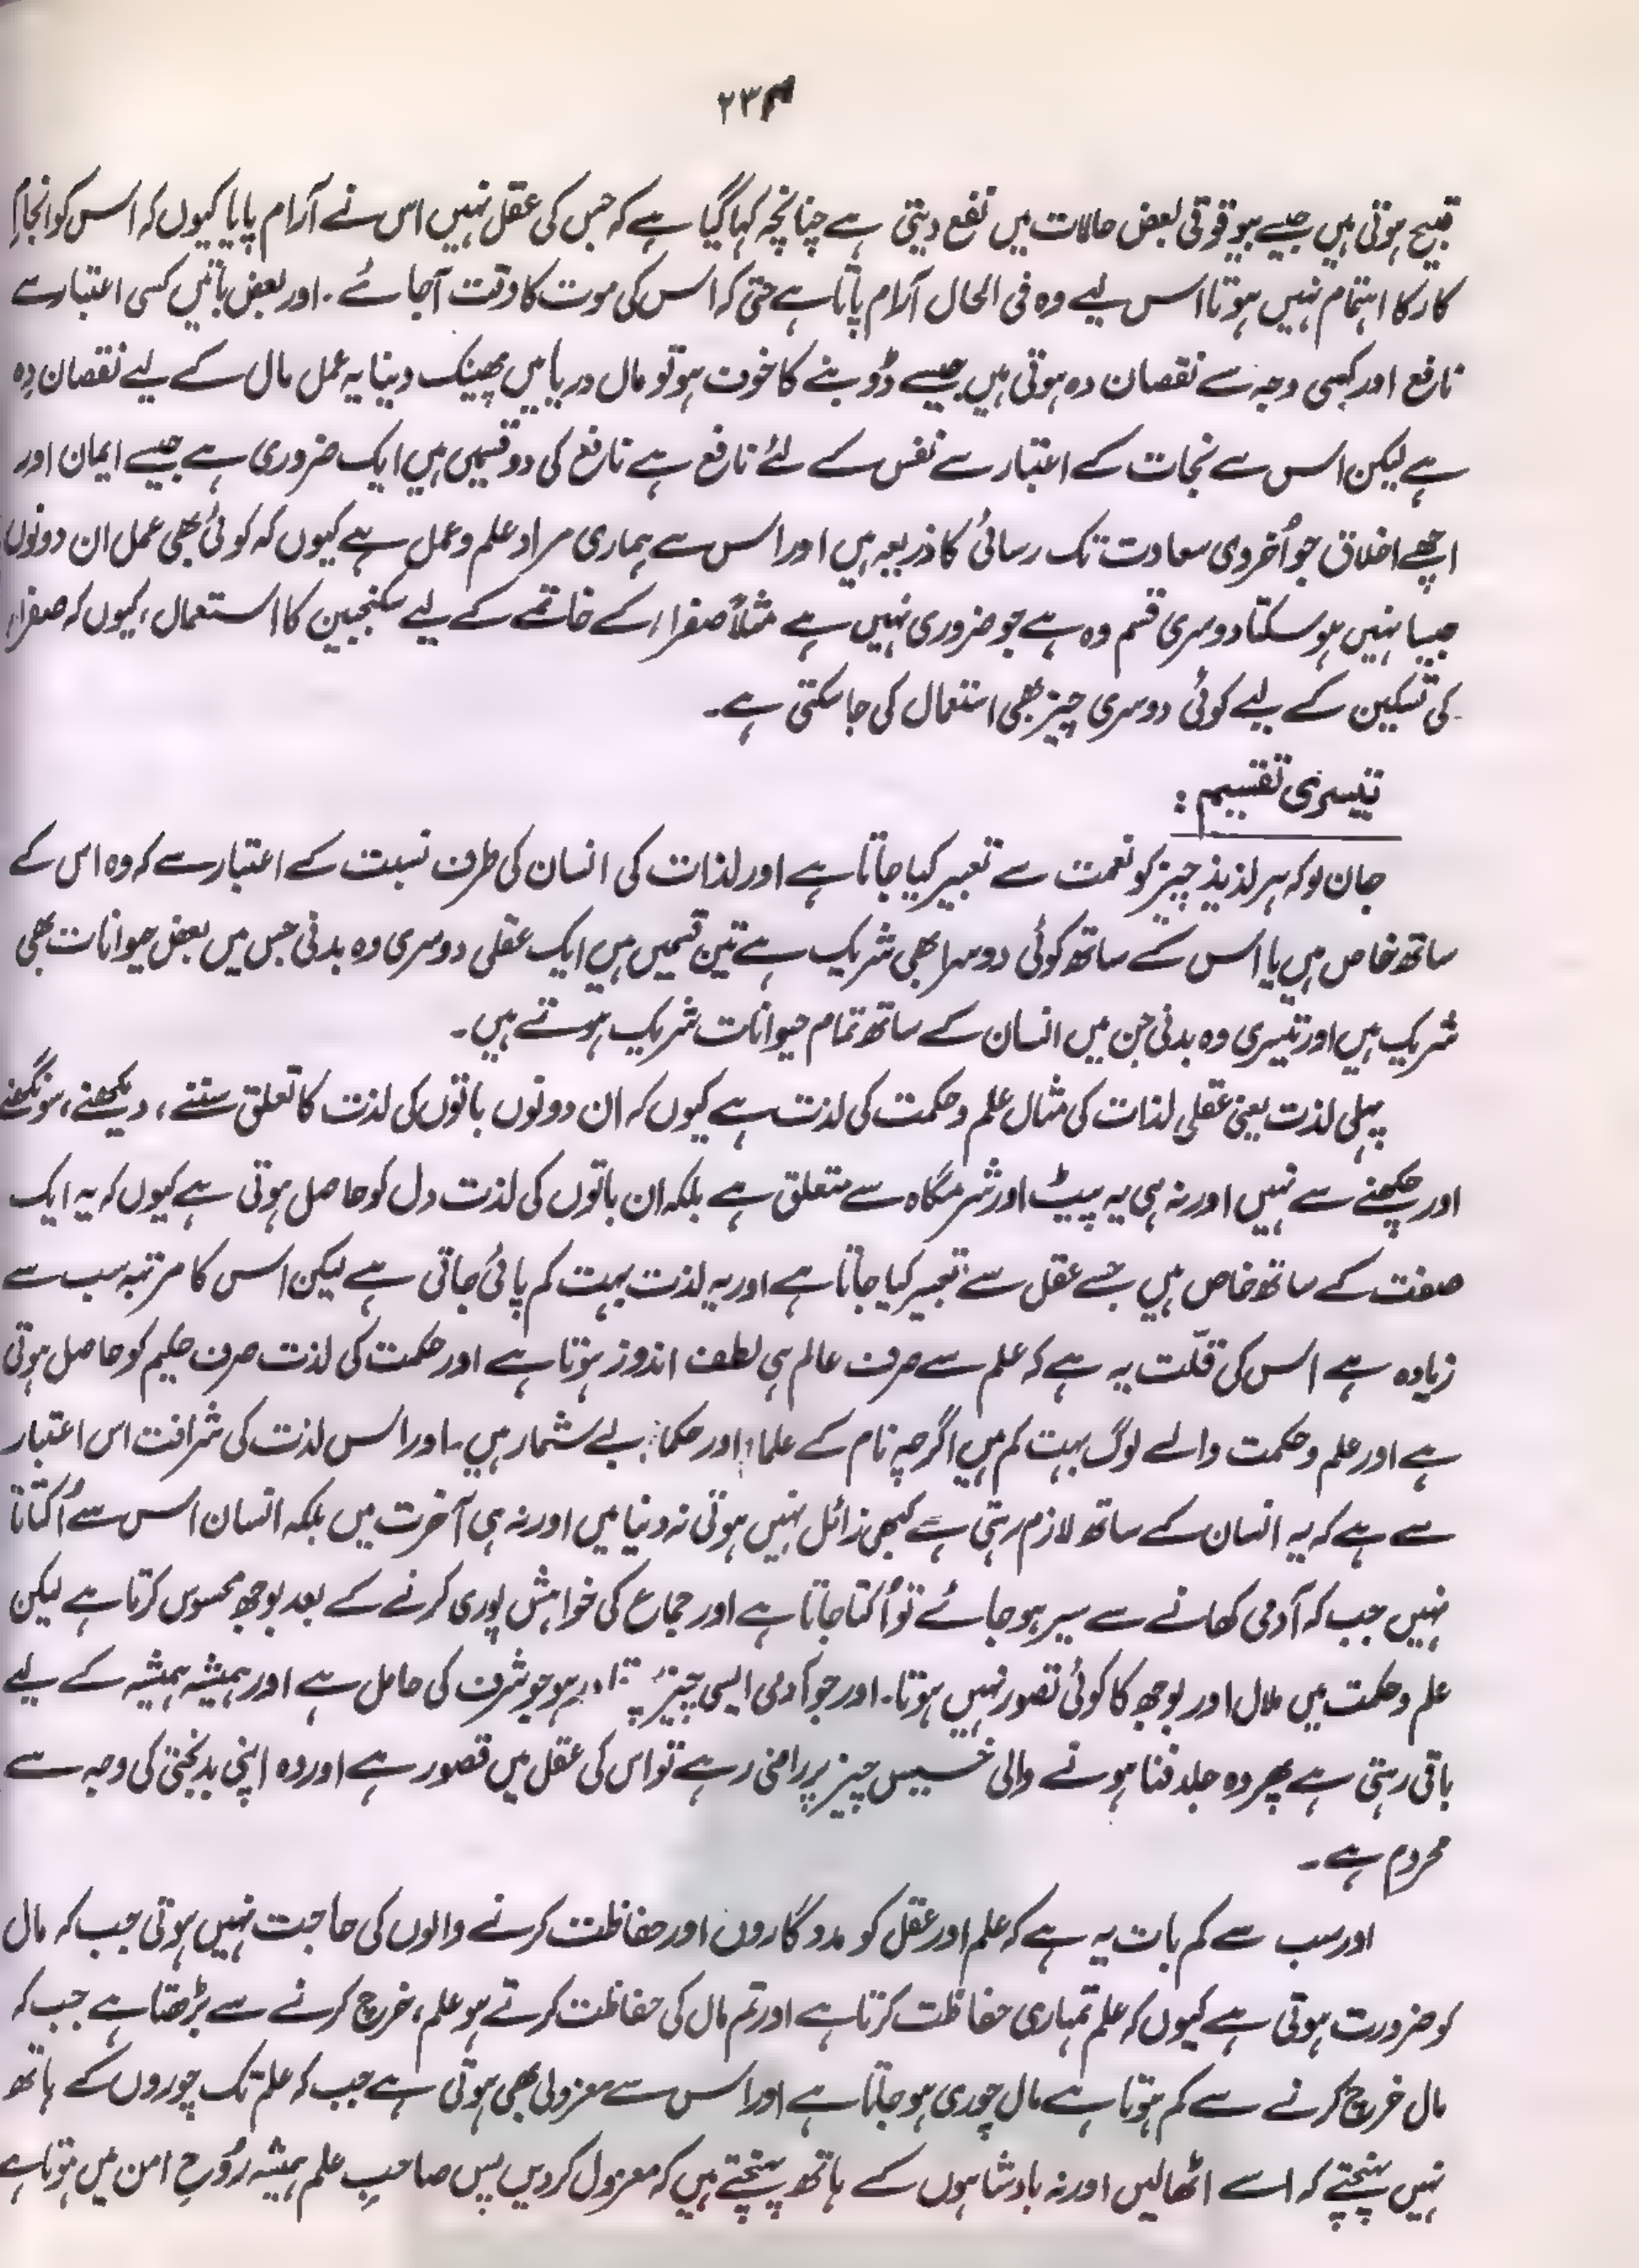 ۲۳۴
قبیح ہوتی ہیں جیسے بیوقوفی بعض حالات میں نفع دیتی ہے چنانچہ کہا گیا ہے کہ جس کی عقل نہیں اس نے آرام پایا کیوں کہ اس کو انجامِ
کار کا اہتمام نہیں ہوتا اس لیے وہ فی الحال آرام پاتا ہے حتیٰ کہ اس کی موت کا وقت آجائے۔ اور بعض باتیں کسی اعتبار سے
نافع اور کسی وجہ سے نقصان دہ ہوتی ہیں جیسے ڈوبنے کا خوف ہو تو مال دریا میں پھینک دینا یہ عمل مال کے لیے نقصان دہ
ہے لیکن اس سے نجات کے اعتبار سے نفس کے لئے نافع ہے نافع کی دو قسمیں ہیں ایک ضروری ہے جیسے ایمان اور
اچھے اخلاق جو اُخروی سعادت تک رسائی کا ذریعہ ہیں اور اس سے ہماری مراد علم و عمل ہے کیوں کہ کوئی بھی عمل ان دونوں
جیسا نہیں ہو سکتا دوسری قسم وہ ہے جو ضروری نہیں ہے مثلاً صفراء کے خاتمے کے لیے سکنجبین کا استعمال، کیوں کہ صفراء
کی تسکین کے لیے کوئی دوسری چیز بھی استعمال کی جا سکتی ہے۔
تیسری تقسیم :
جان لو کہ ہر لذیذ چیز کو نعمت سے تعبیر کیا جاتا ہے اور لذات کی انسان کی طرف نسبت کے اعتبار سے کہ وہ اس کے
ساتھ خاص ہیں یا اُس کے ساتھ کوئی دوسرا بھی شریک ہے تین قسمیں ہیں ایک عقلی دوسری وہ بدنی جس میں بعض حیوانات بھی
شریک ہیں اور تیسری وہ بدنی جن میں انسان کے ساتھ تمام حیوانات شریک ہوتے ہیں۔
پہلی لذت یعنی عقلی لذات کی مثال علم و حکمت کی لذت ہے کیوں کہ ان دونوں باتوں کی لذت کا تعلق سننے، دیکھنے، سونگھنے
اور چکھنے سے نہیں اور نہ ہی یہ پیٹ اور شرمگاہ سے متعلق ہے بلکہ ان باتوں کی لذت دل کو حاصل ہوتی ہے کیوں کہ یہ ایک
صفت کے ساتھ خاص ہیں جسے عقل سے تعبیر کیا جاتا ہے اور یہ لذت بہت کم پائی جاتی ہے لیکن اس کا مرتبہ سب سے
زیادہ ہے اس کی قلّت یہ ہے کہ علم سے صرف عالم ہی لطف اندوز ہوتا ہے اور حکمت کی لذت صرف حکیم کو حاصل ہوتی
ہے اور علم و حکمت والے لوگ بہت کم ہیں اگرچہ نام کے علماء اور حکماء بے شمار ہیں۔ اور اس لذت کی شرافت اس اعتبار
سے ہے کہ یہ انسان کے ساتھ لازم رہتی ہے کبھی زائل نہیں ہوتی نہ دنیا میں اور نہ ہی آخرت میں بلکہ انسان اس سے اُکتاتا
نہیں جب کہ آدمی کھانے سے سیر ہو جائے تو اُکتا جاتا ہے اور جماع کی خواہش پوری کرنے کے بعد بوجھ محسوس کرتا ہے لیکن
علم و حکمت میں ملال اور بوجھ کا کوئی تصور نہیں ہوتا۔ اور جو آدمی ایسی چیز پر ہو جو شرف کی حامل ہے اور ہمیشہ ہمیشہ کے لیے
باقی رہتی ہے پھر وہ جلد فنا ہونے والی خسیس چیز پر راضی رہے تو اس کی عقل میں قصور ہے اور وہ اپنی بدبختی کی وجہ سے
محروم ہے۔
اور سب سے کم بات یہ ہے کہ علم اور عقل کو مددگاروں اور حفاظت کرنے والوں کی حاجت نہیں ہوتی جب کہ مال
کو ضرورت ہوتی ہے کیوں کہ علم تمہاری حفاظت کرتا ہے اور تم مال کی حفاظت کرتے ہو علم، خرچ کرنے سے بڑھتا ہے جب کہ
مال خرچ کرنے سے کم ہوتا ہے مال چوری ہو جاتا ہے اور اس سے معزولی بھی ہوتی ہے جب کہ علم تک چوروں کے ہاتھ
نہیں پہنچتے کہ اسے اٹھا لیں اور نہ بادشاہوں کے ہاتھ پہنچتے ہیں کہ معزول کر دیں پس صاحبِ علم ہمیشہ رُوحِ امن میں ہوتا ہے